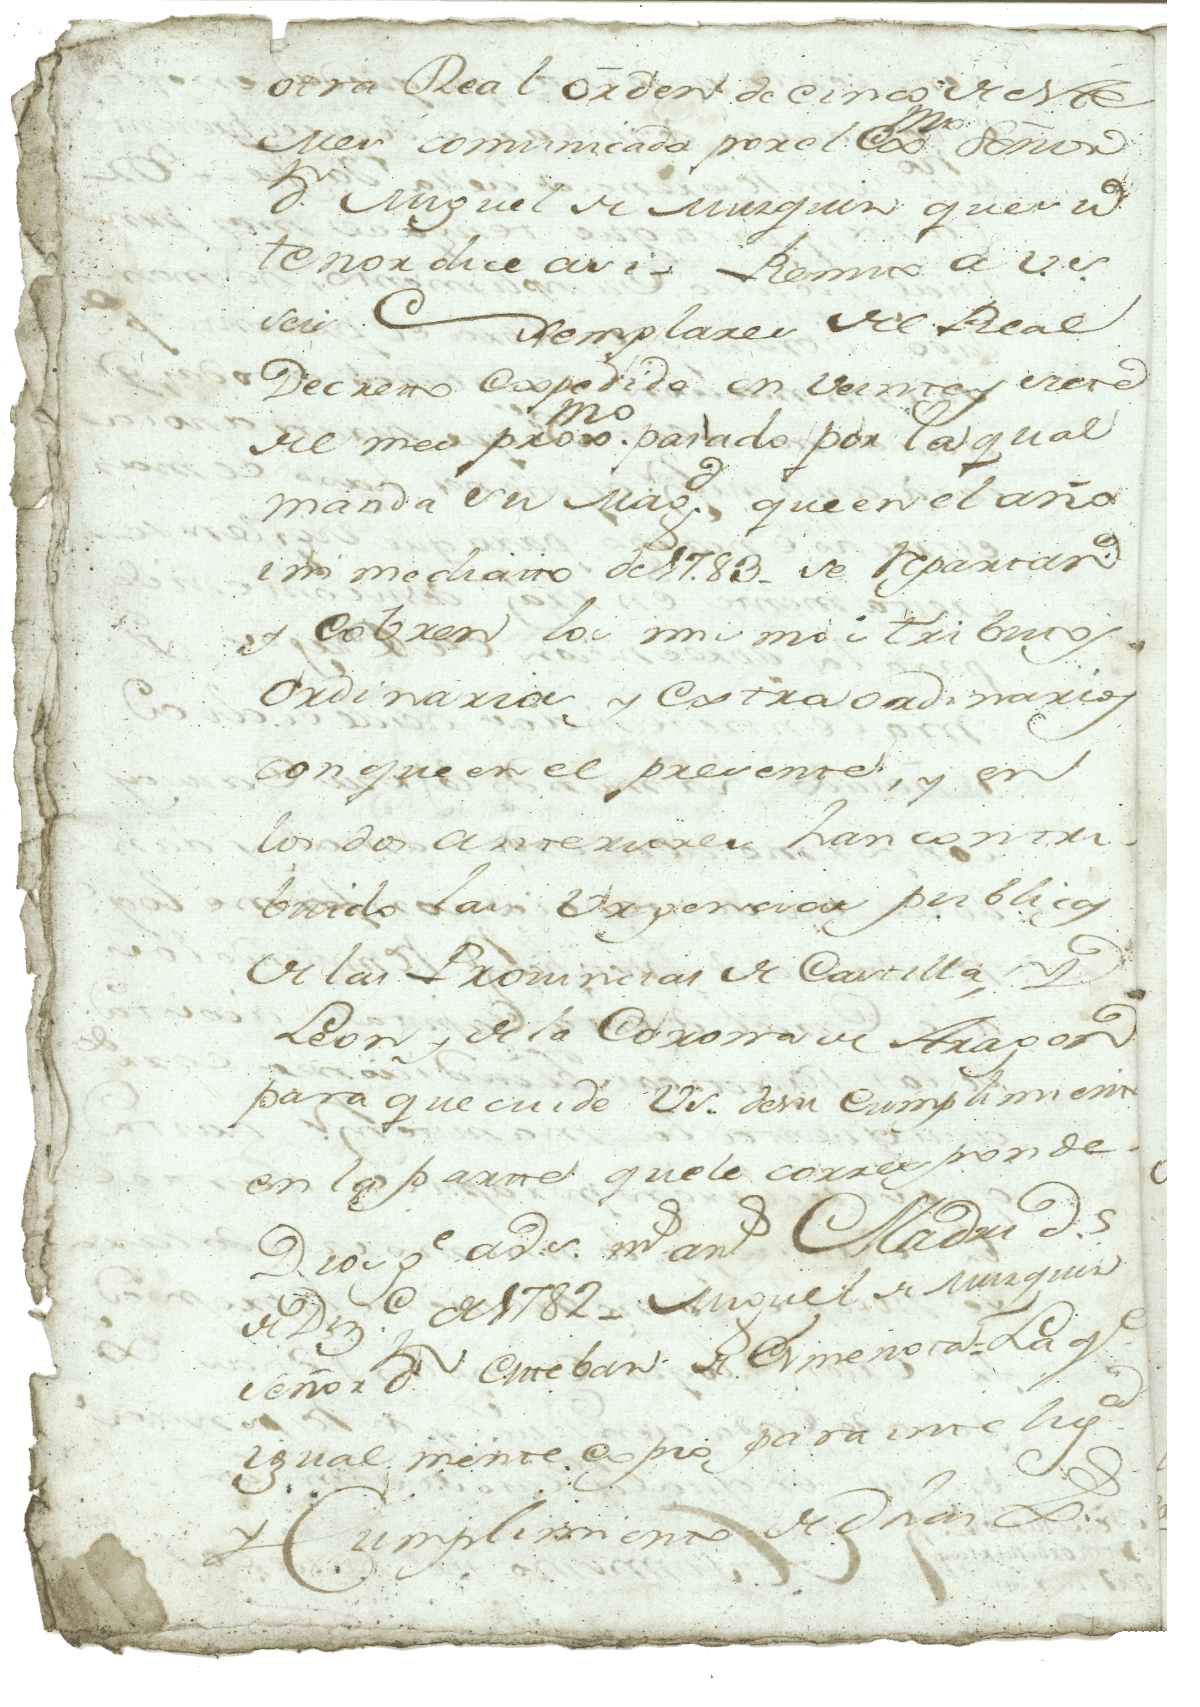 otra Real orden de cinco de este
Mes comunicada por el Exmo. Señor
Dn. Miguel de Muzquiz que su
tenor dice asi = Remito a V.S.
seis Exemplares del Real
Decreto expedido en veinte y siete
del mes proxmo. pasado por la qual
manda su Magd. que en el año
inmediatto de 1783 = se Repartan
y Cobren los mismos tributos
ordinarios y extraordinarios
con que en el presente, y en
los dos anteriores han contri-
buido las Urgencias publicas
de las Provincias de Castilla, y
Leon y de la Corona de Aragon
para que cuide V.S. de su Cumplimiento
en la parte que le corresponde.
Dios ge. a V.S. ms. as. Madrid 5
de Dize. de 1782 = Miguel de Muzquiz
señor Dn. Esteban de Esmenota = La qe.
igualmente copio para intelign.
y Cumplimiento de dhas